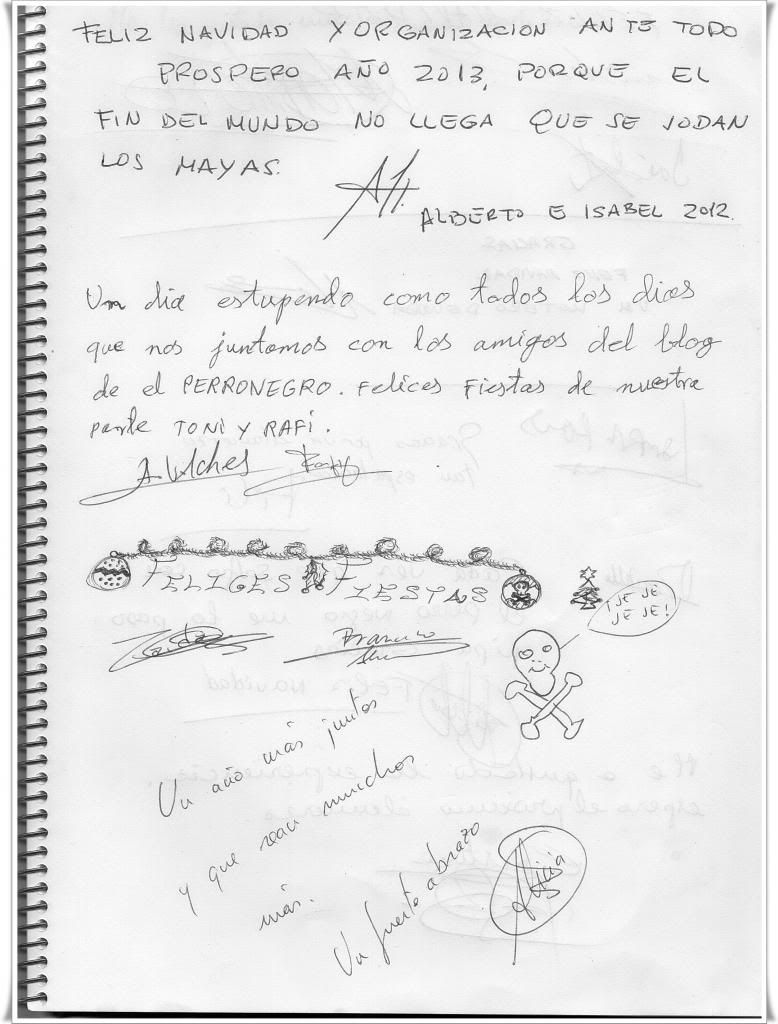 FELIZ NAVIDAD Y ORGANIZACION ANTE TODO
PROSPERO AÑO 2013, PORQUE EL
FIN DEL MUNDO NO LLEGA QUE SE JODAN
LOS MAYAS.
ALBERTO E ISABEL 2012.
Un dia estupendo como todos los dias
que nos juntamos con los amigos del blog
de el PERRONEGRO. Felices Fiestas de nuestra
parte TONI Y RAFI.
A. Vilches
FELICES FIESTAS
¡JE JE
JE JE!
Francisco
Un año más juntos
y que sean munchos
más.
Un fuerte abrazo